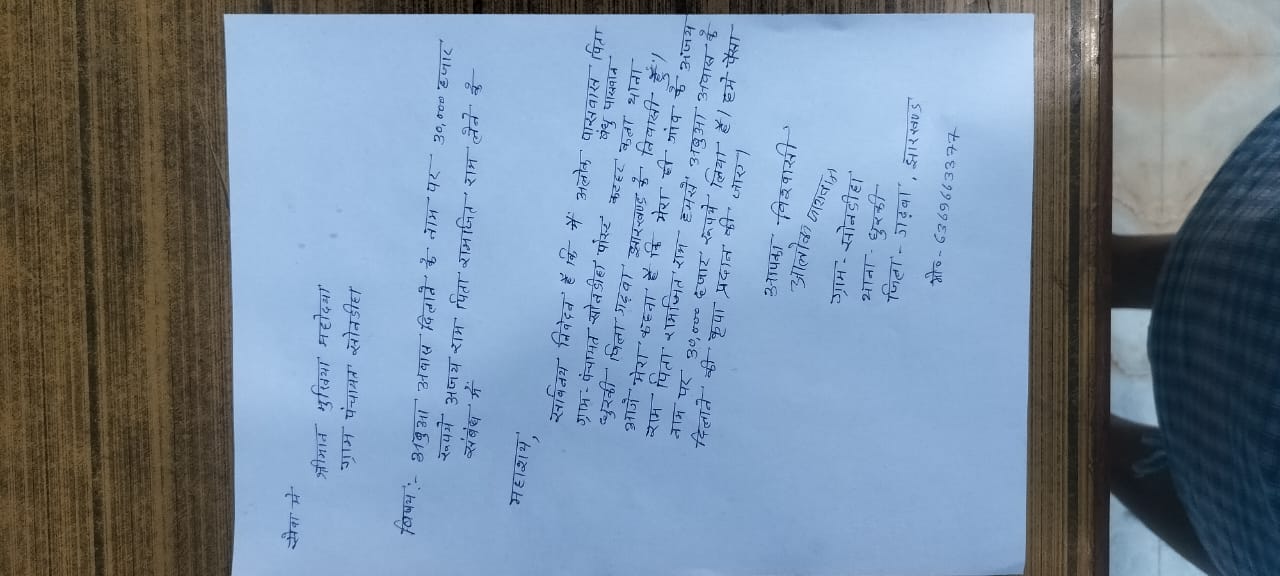 सेवा में
श्रीमान मुखिया महोदया
ग्राम पंचायत खोनडीहा
विषय:- अबुआ अवास दिलाने के नाम पर 30,000 हजार
रूपये अजय राम पिता रामजित राम लेने के
संबंध में
महाशय,
सविनय निवेदन है कि मैं अलोक पासवान पिता
शंभु पासवान
ग्राम-पंचायत खोनडीहा पोस्ट कदर थाना
धुरकी जिला गढ़वा झारखण्ड के निवासी हूँ।
आगे मेरा कहना है कि मेरा ही गांव के अजय
राम पिता रामजित राम हमसे अबुआ अवास के
नाम पर 30,000 हजार रूपये लिया है। हमे पैसा
दिलाने की कृपा प्रदान की जाए।
आपका विश्वासी
आलोक पासवान
ग्राम - खोनडीहा
थाना - धुरकी
जिला - गढ़वा, झारखण्ड
मो०-